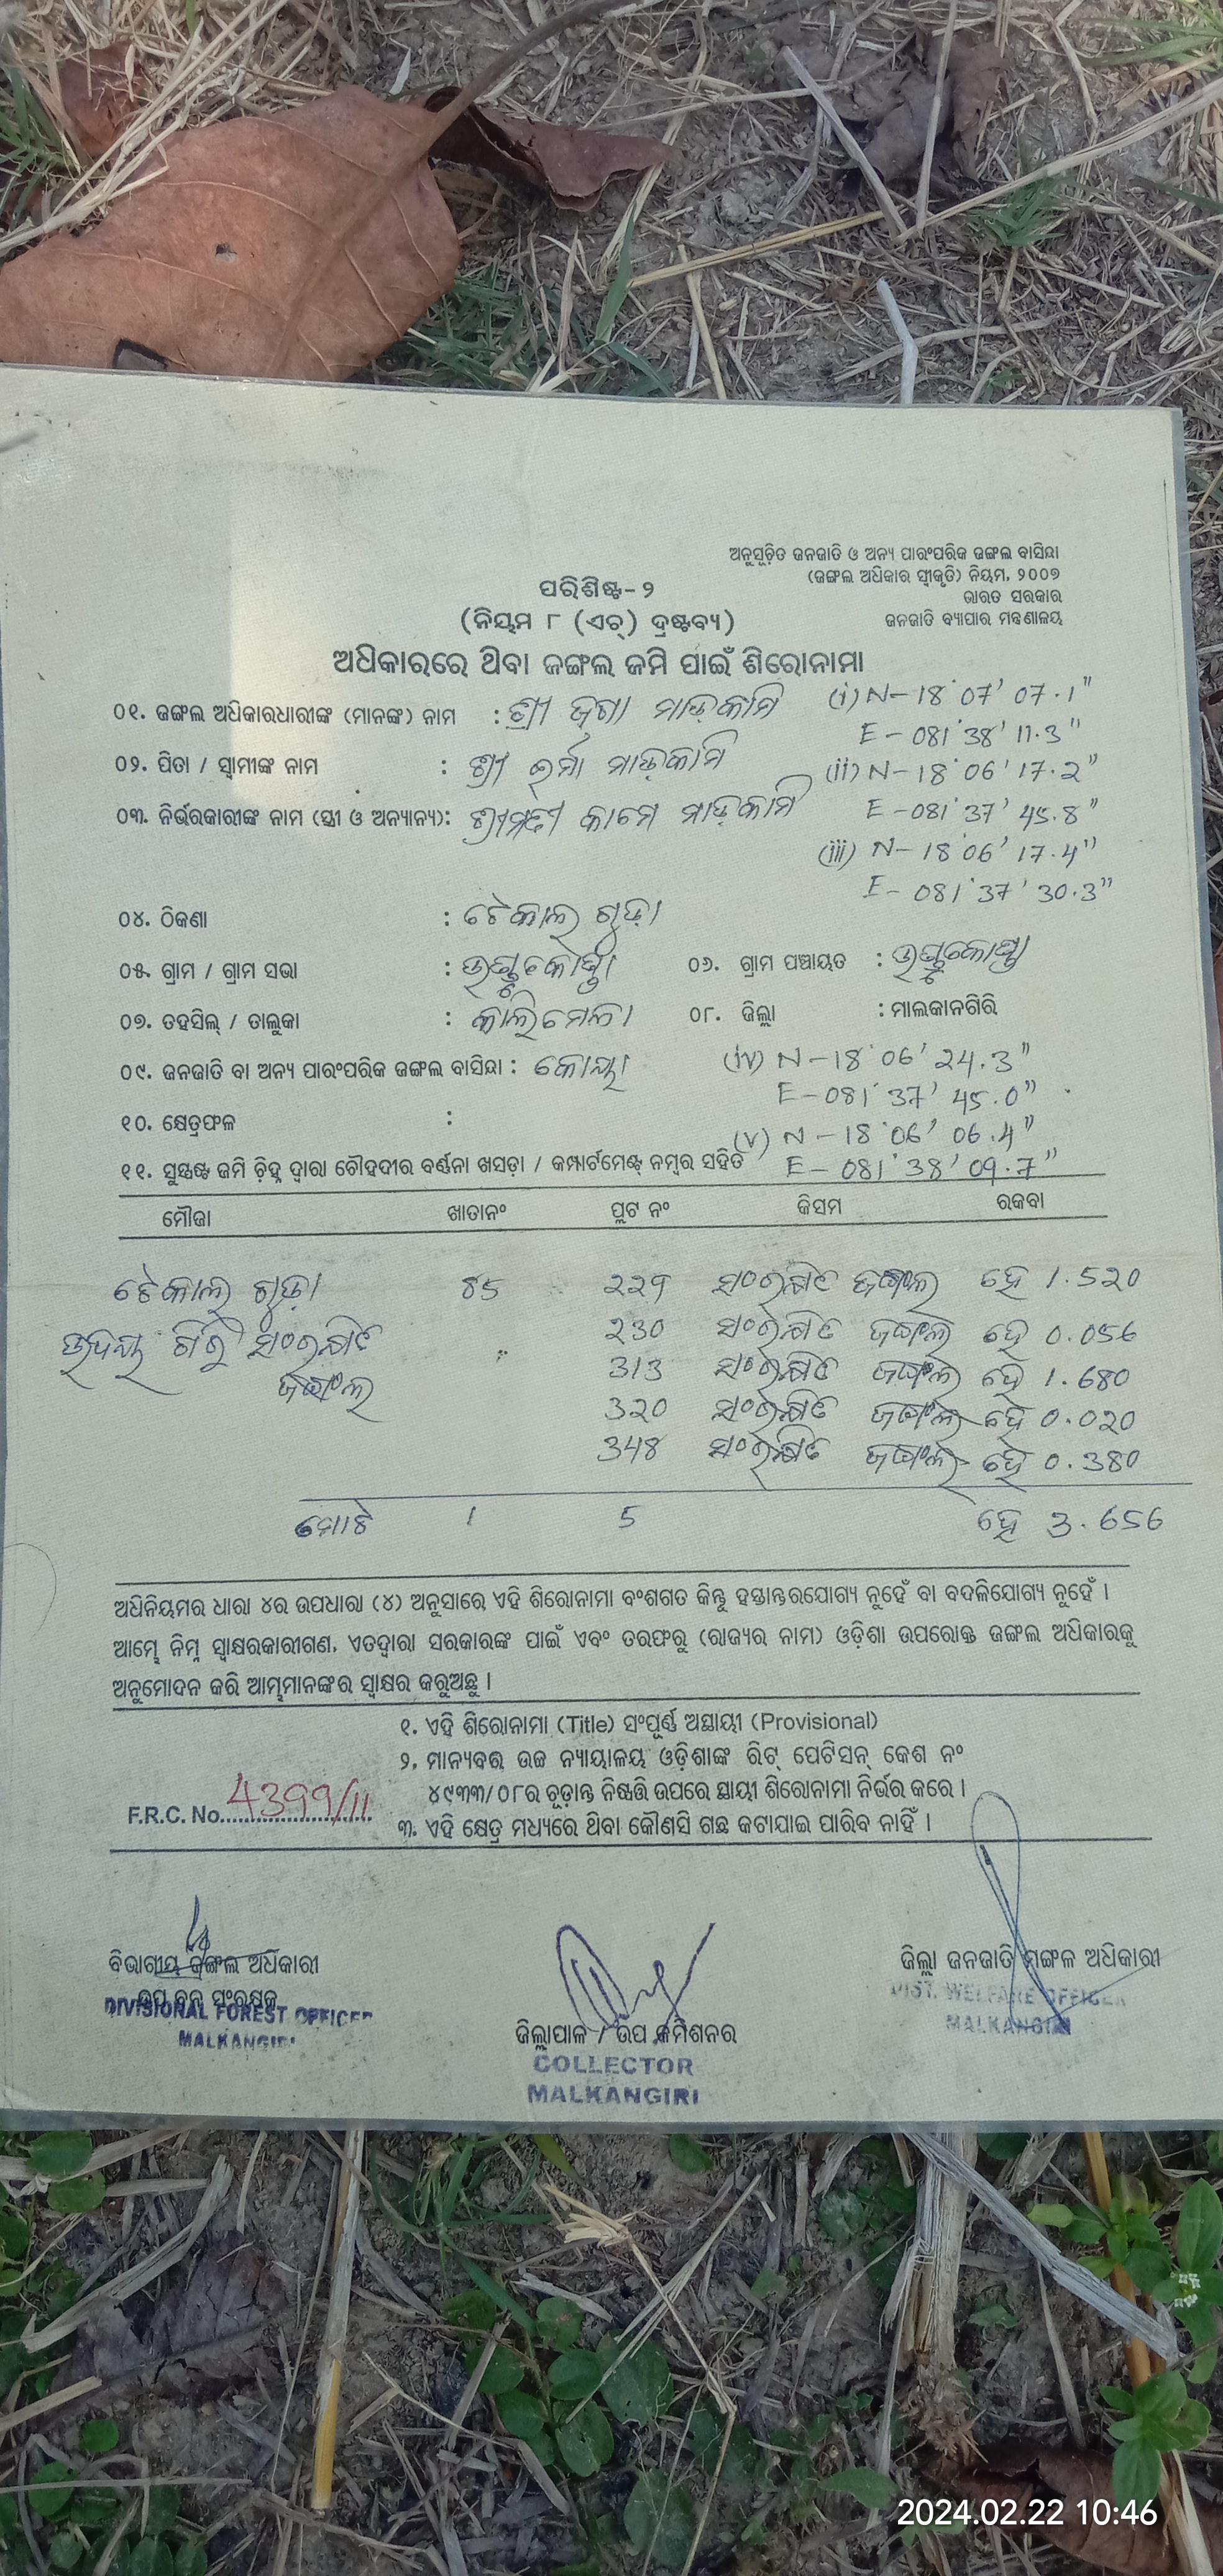 ଅନୁସୂଚିତ ଜନଜାତି ଓ ଅନ୍ୟ ପାରଂପରିକ ଜଙ୍ଗଲ ବାସିନ୍ଦା
(ଜଙ୍ଗଲ ଅଧିକାର ସ୍ୱୀକୃତି) ନିୟମ, ୨୦୦୭
ଭାରତ ସରକାର
ଜନଜାତି ବ୍ୟାପାର ମନ୍ତ୍ରଣାଳୟ
ପରିଶିଷ୍ଟ-୨
(ନିୟମ ୮ (ଏଚ୍) ଦ୍ରଷ୍ଟବ୍ୟ)
ଅଧିକାରରେ ଥିବା ଜଙ୍ଗଲ ଜମି ପାଇଁ ଶିରୋନାମା
୦୧. ଜଙ୍ଗଲ ଅଧିକାରଧାରୀଙ୍କ (ମାନଙ୍କ) ନାମ : ଶ୍ରୀ ମାଡ଼କାମି (i) N-18°07' 07.1"
E-081°38' 11.3"
୦୨. ପିତା / ସ୍ୱାମୀଙ୍କ ନାମ : ଶ୍ରୀ ମାଡ଼କାମି (ii) N-18°06' 17.2"
E-081°37' 45.8"
୦୩. ନିର୍ଭରକାରୀଙ୍କ ନାମ (ସ୍ତ୍ରୀ ଓ ଅନ୍ୟାନ୍ୟ): ଶ୍ରୀମତୀ କାମେ ମାଡ଼କାମି
(iii) N-18°06' 17.4"
E-081°37' 30.3"
୦୪. ଠିକଣା : ଟେକାଲ ଗୁଡ଼ା
୦୫. ଗ୍ରାମ / ଗ୍ରାମ ସଭା : ୦୬. ଗ୍ରାମ ପଞ୍ଚାୟତ :
୦୭. ତହସିଲ୍ / ତାଲୁକା : କାଲିମେଳା ୦୮. ଜିଲ୍ଲା : ମାଲକାନଗିରି
୦୯. ଜନଜାତି ବା ଅନ୍ୟ ପାରଂପରିକ ଜଙ୍ଗଲ ବାସିନ୍ଦା : କୋୟା (iv) N-18°06' 24.3"
E-081°37' 45.0"
୧୦. କ୍ଷେତ୍ରଫଳ : (v) N-18°06' 06.4"
୧୧. ସୁସ୍ପଷ୍ଟ ଜମି ଚିହ୍ନ ଦ୍ୱାରା ଚୌହଦୀର ବର୍ଣ୍ଣନା ଖସଡ଼ା / କମ୍ପାର୍ଟମେଣ୍ଟ୍ ନମ୍ବର ସହିତ E-081°38' 09.7"
ମୌଜା ଖାତାନଂ ପ୍ଲଟ ନଂ କିସମ ରକବା
ଟେକାଲ ଗୁଡ଼ା 85 229 ସଂରକ୍ଷିତ ଜଙ୍ଗଲ ହେ 1.520
ଉଦୟ ଗିରି ସଂରକ୍ଷିତ 230 ସଂରକ୍ଷିତ ଜଙ୍ଗଲ ହେ 0.056
ଜଙ୍ଗଲ 313 ସଂରକ୍ଷିତ ଜଙ୍ଗଲ ହେ 1.680
320 ସଂରକ୍ଷିତ ଜଙ୍ଗଲ ହେ 0.020
348 ସଂରକ୍ଷିତ ଜଙ୍ଗଲ ହେ 0.380
ମୋଟ 1 5 ହେ 3.656
ଅଧିନିୟମର ଧାରା ୪ର ଉପଧାରା (୪) ଅନୁସାରେ ଏହି ଶିରୋନାମା ବଂଶଗତ କିନ୍ତୁ ହସ୍ତାନ୍ତରଯୋଗ୍ୟ ନୁହେଁ ବା ବଦଳିଯୋଗ୍ୟ ନୁହେଁ ।
ଆମ୍ଭେ ନିମ୍ନ ସ୍ୱାକ୍ଷରକାରୀଗଣ, ଏତଦ୍ୱାରା ସରକାରଙ୍କ ପାଇଁ ଏବଂ ତରଫରୁ (ରାଜ୍ୟର ନାମ) ଓଡ଼ିଶା ଉପରୋକ୍ତ ଜଙ୍ଗଲ ଅଧିକାରକୁ
ଅନୁମୋଦନ କରି ଆମ୍ଭମାନଙ୍କର ସ୍ୱାକ୍ଷର କରୁଅଛୁ ।
୧. ଏହି ଶିରୋନାମା (Title) ସଂପୂର୍ଣ୍ଣ ଅସ୍ଥାୟୀ (Provisional)
୨. ମାନ୍ୟବର ଉଚ୍ଚ ନ୍ୟାୟାଳୟ ଓଡ଼ିଶାଙ୍କ ରିଟ୍ ପେଟିସନ୍ କେଶ ନଂ
୪୯୩୩/୦୮ର ଚୂଡ଼ାନ୍ତ ନିଷ୍ପତ୍ତି ଉପରେ ସ୍ଥାୟୀ ଶିରୋନାମା ନିର୍ଭର କରେ ।
F.R.C. No. 4399/11
୩. ଏହି କ୍ଷେତ୍ର ମଧ୍ୟରେ ଥିବା କୌଣସି ଗଛ କଟାଯାଇ ପାରିବ ନାହିଁ ।
ବିଭାଗୀୟ ଜଙ୍ଗଲ ଅଧିକାରୀ
ଉପ ବନ ସଂରକ୍ଷକ
DIVISIONAL FOREST OFFICER
MALKANGIRI
ଜିଲ୍ଲାପାଳ / ଉପ କମିଶନର
COLLECTOR
MALKANGIRI
ଜିଲ୍ଲା ଜନଜାତି ମଙ୍ଗଳ ଅଧିକାରୀ
DIST. WELFARE OFFICER
MALKANGIRI
2024.02.22 10:46